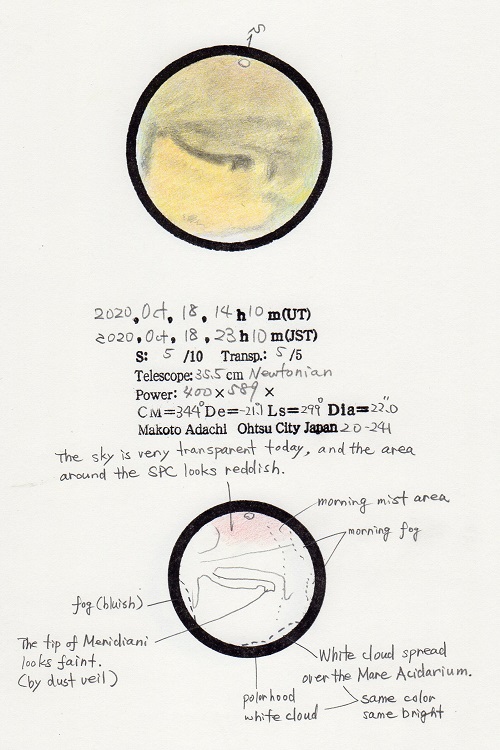 S
2020, Oct, 18, 14 h 10 m(UT)
2020, Oct, 18, 23 h 10 m(JST)
S: 5 /10 Transp.: 5 /5
Telescope: 35.5 cm Newtonian
Power: 400 × 589 ×
CM=344° De=-21.1 Ls=299° Dia=22.″0
Makoto Adachi Ohtsu City Japan 20-241
The sky is very transparent today, and the area
around the SPC looks reddish.
morning mist area
morning fog
fog (bluish)
The tip of Meridiani
looks faint.
(by dust veil)
White cloud spread
over the Mare Acidarium.
polarhood
white cloud
same color
same bright